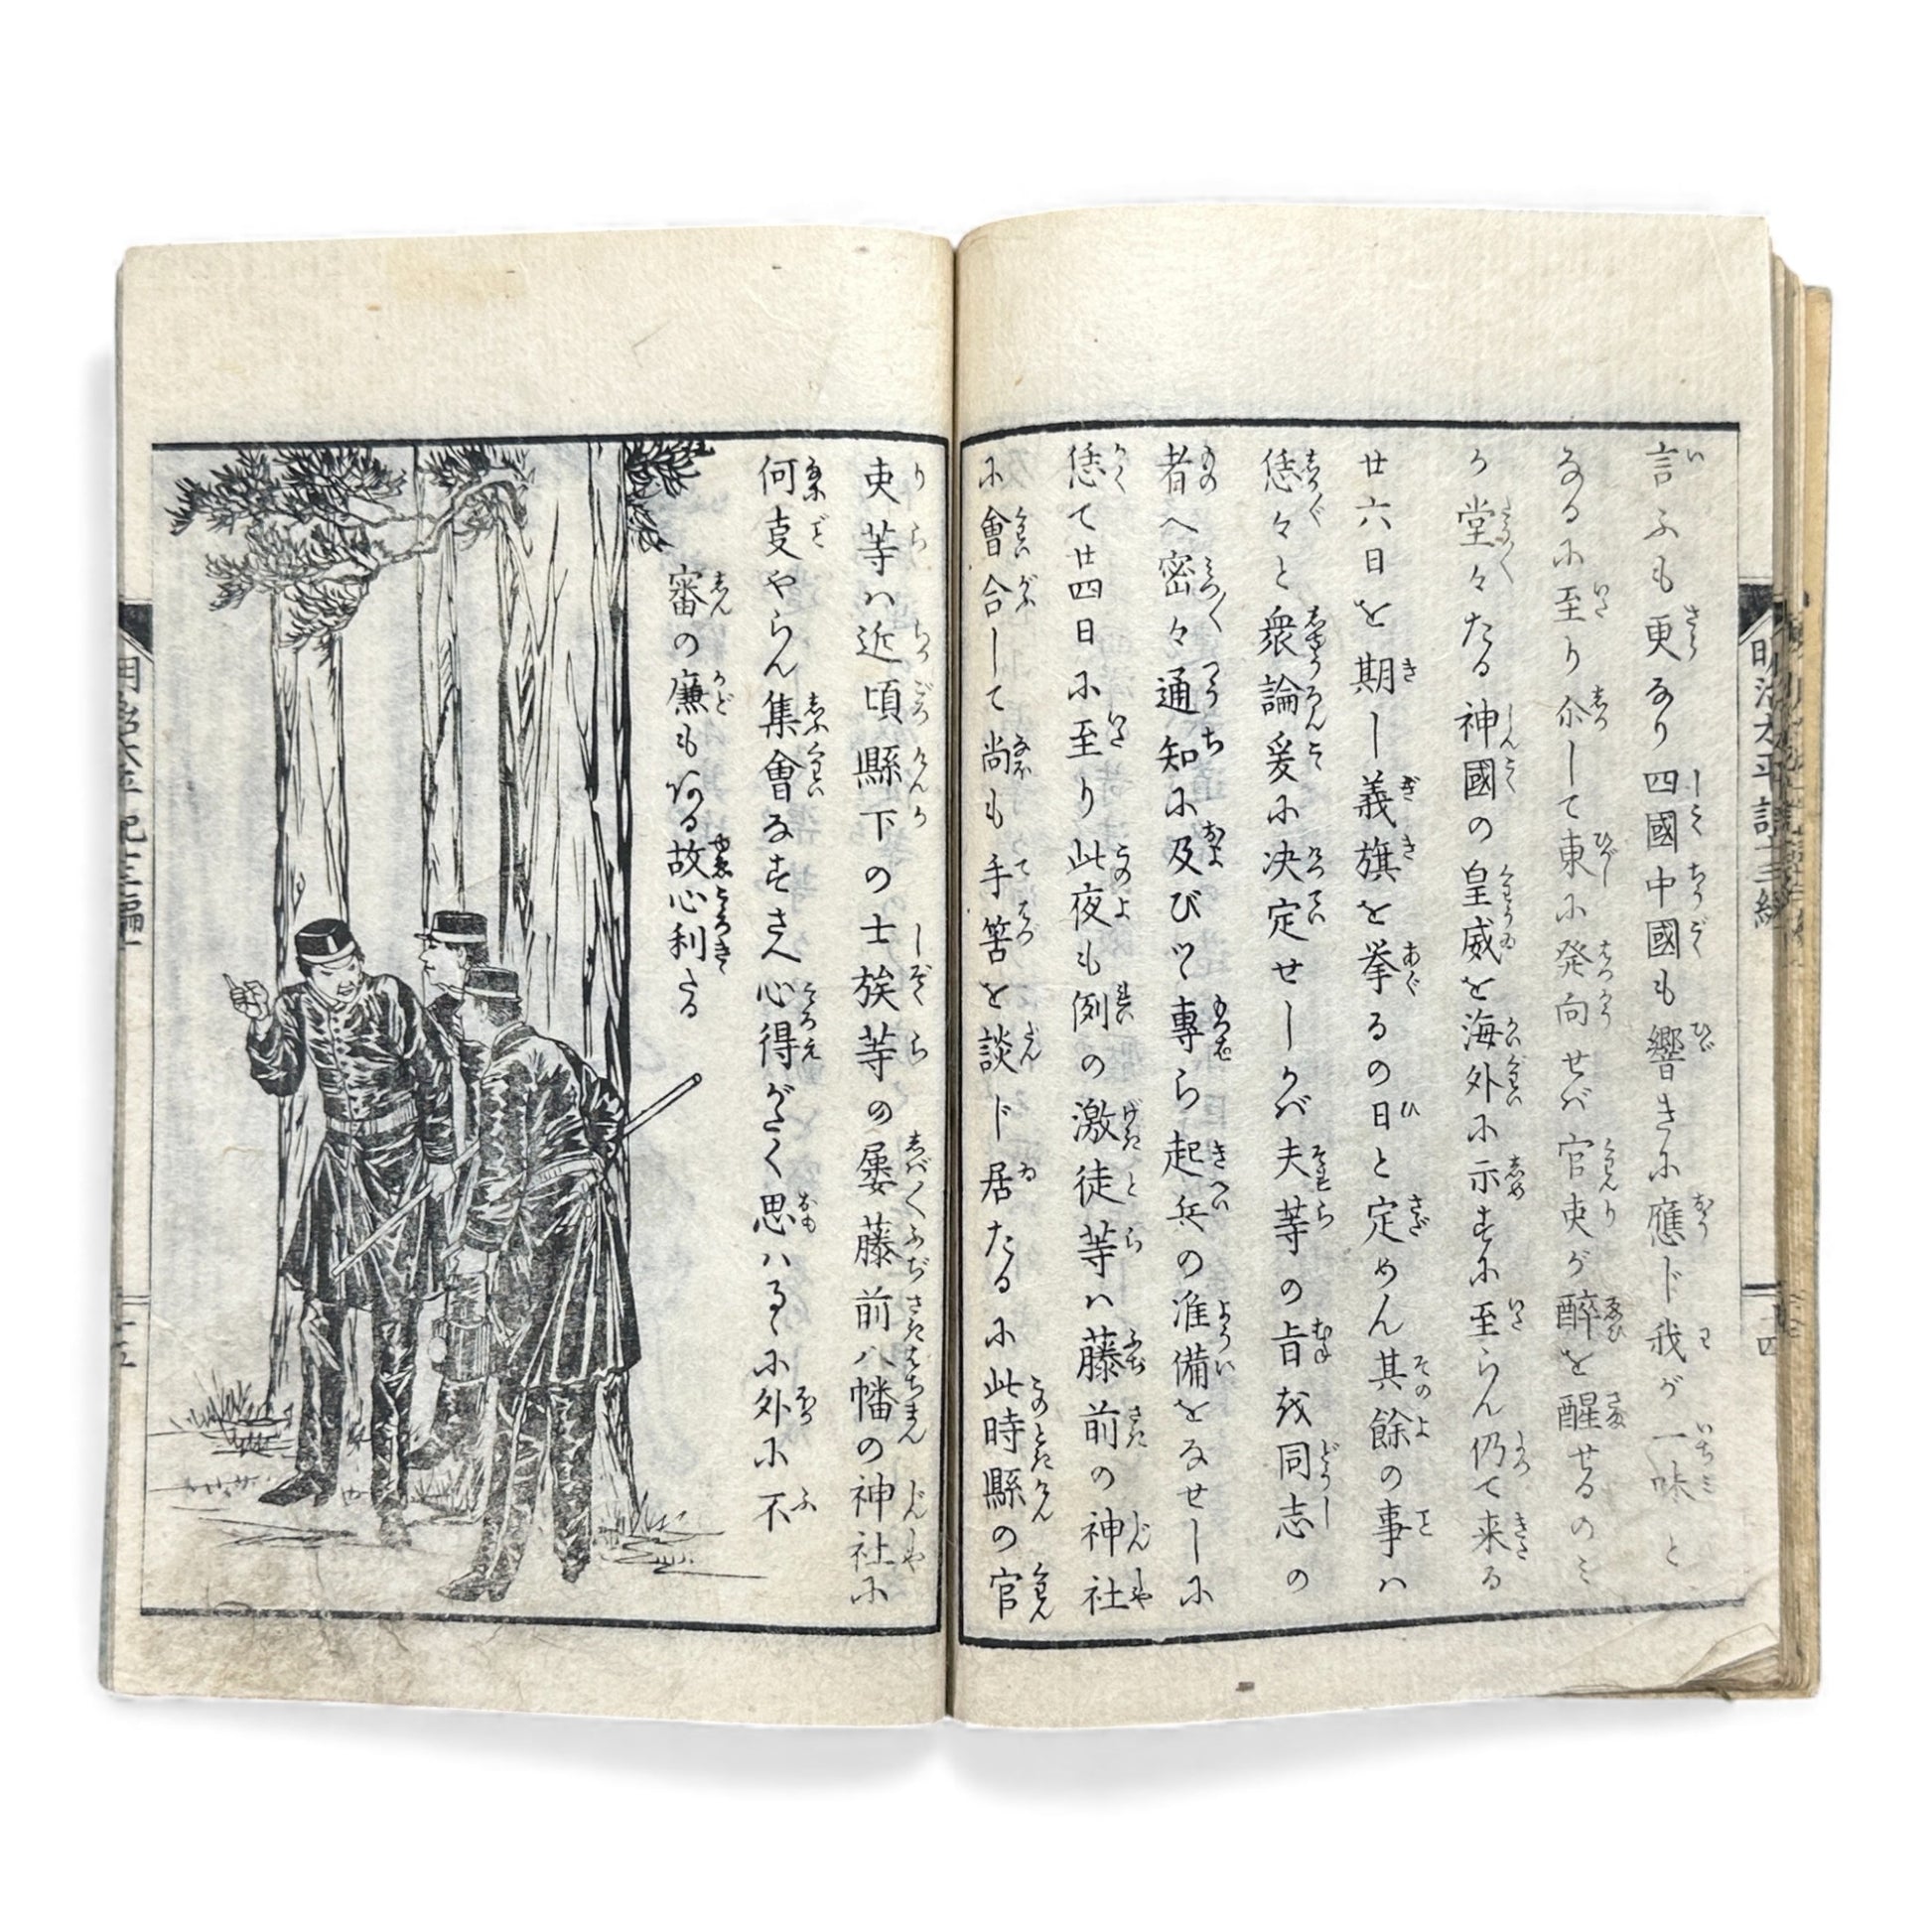 言ふも更なり四國中國も響きに應じ我が一味と
なるに至り尒して東に発向せバ官吏が醉を醒せるのミ
か堂々たる神國の皇威を海外に示すに至らん仍て来る
廿六日を期し義旗を挙るの日と定めん其餘の事ハ
恁々と衆論爰に决定せしかバ夫等の旨を同志の
者へ密々通知に及びツヽ專ら起兵の准備をなせしに
恁て廿四日に至り此夜も例の激徒等ハ藤前の神社
に會合して尚も手筈を談じ居たるに此時縣の官
吏等ハ近頃縣下の士族等の屡藤前八幡の神社に
何事やらん集會なすさへ心得がたく思ハるゝに外に不
審の廉もある故心利たる
明治太平記十三編
十四